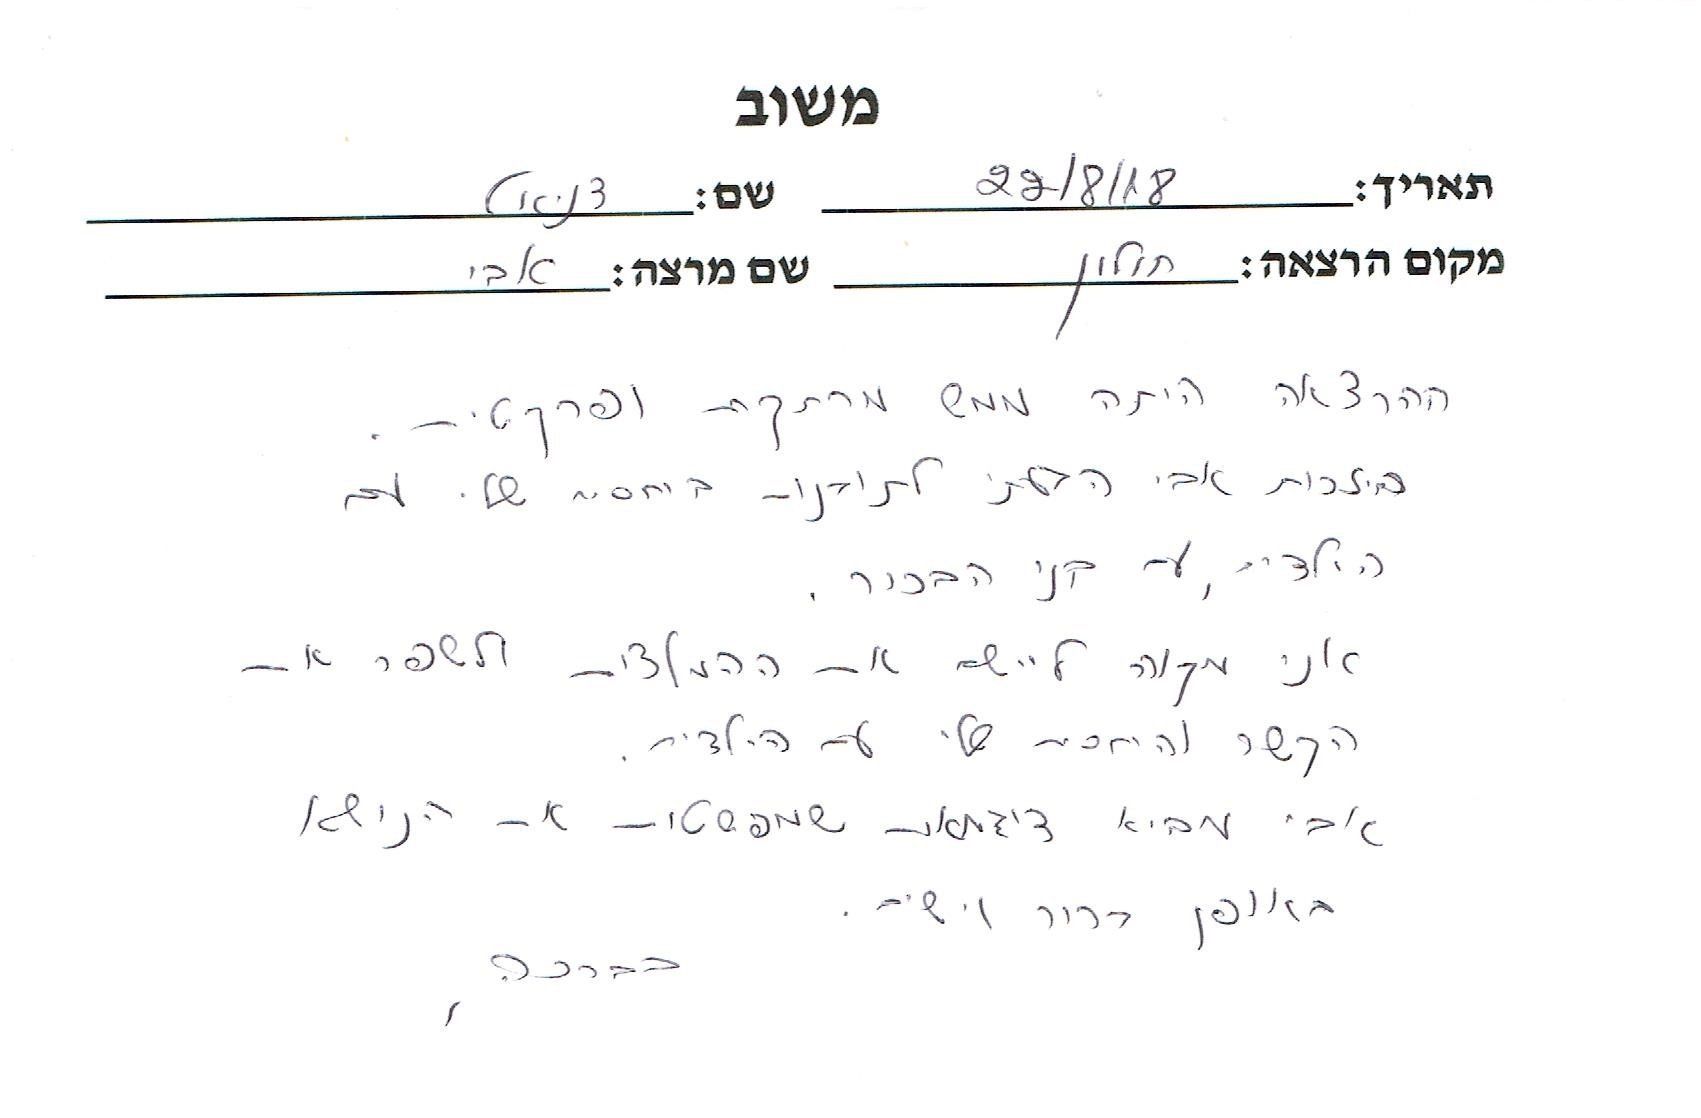 משוב
תאריך: 22/8/18 שם: דניאל
מקום הרצאה: חולון שם מרצה: אבי
ההרצאה היתה ממש מרתקת ופרקטית.
בזכות אבי הגעתי לתובנות ביחסים שלי עם
הילדים, עם בני הבכור.
אני מקווה ליישם את ההמלצות ולשפר את
הקשר והיחסים שלי עם הילדים.
אבי מביא דוגמאות שמפשטות את הנושא
באופן ברור וישים.
בברכה,